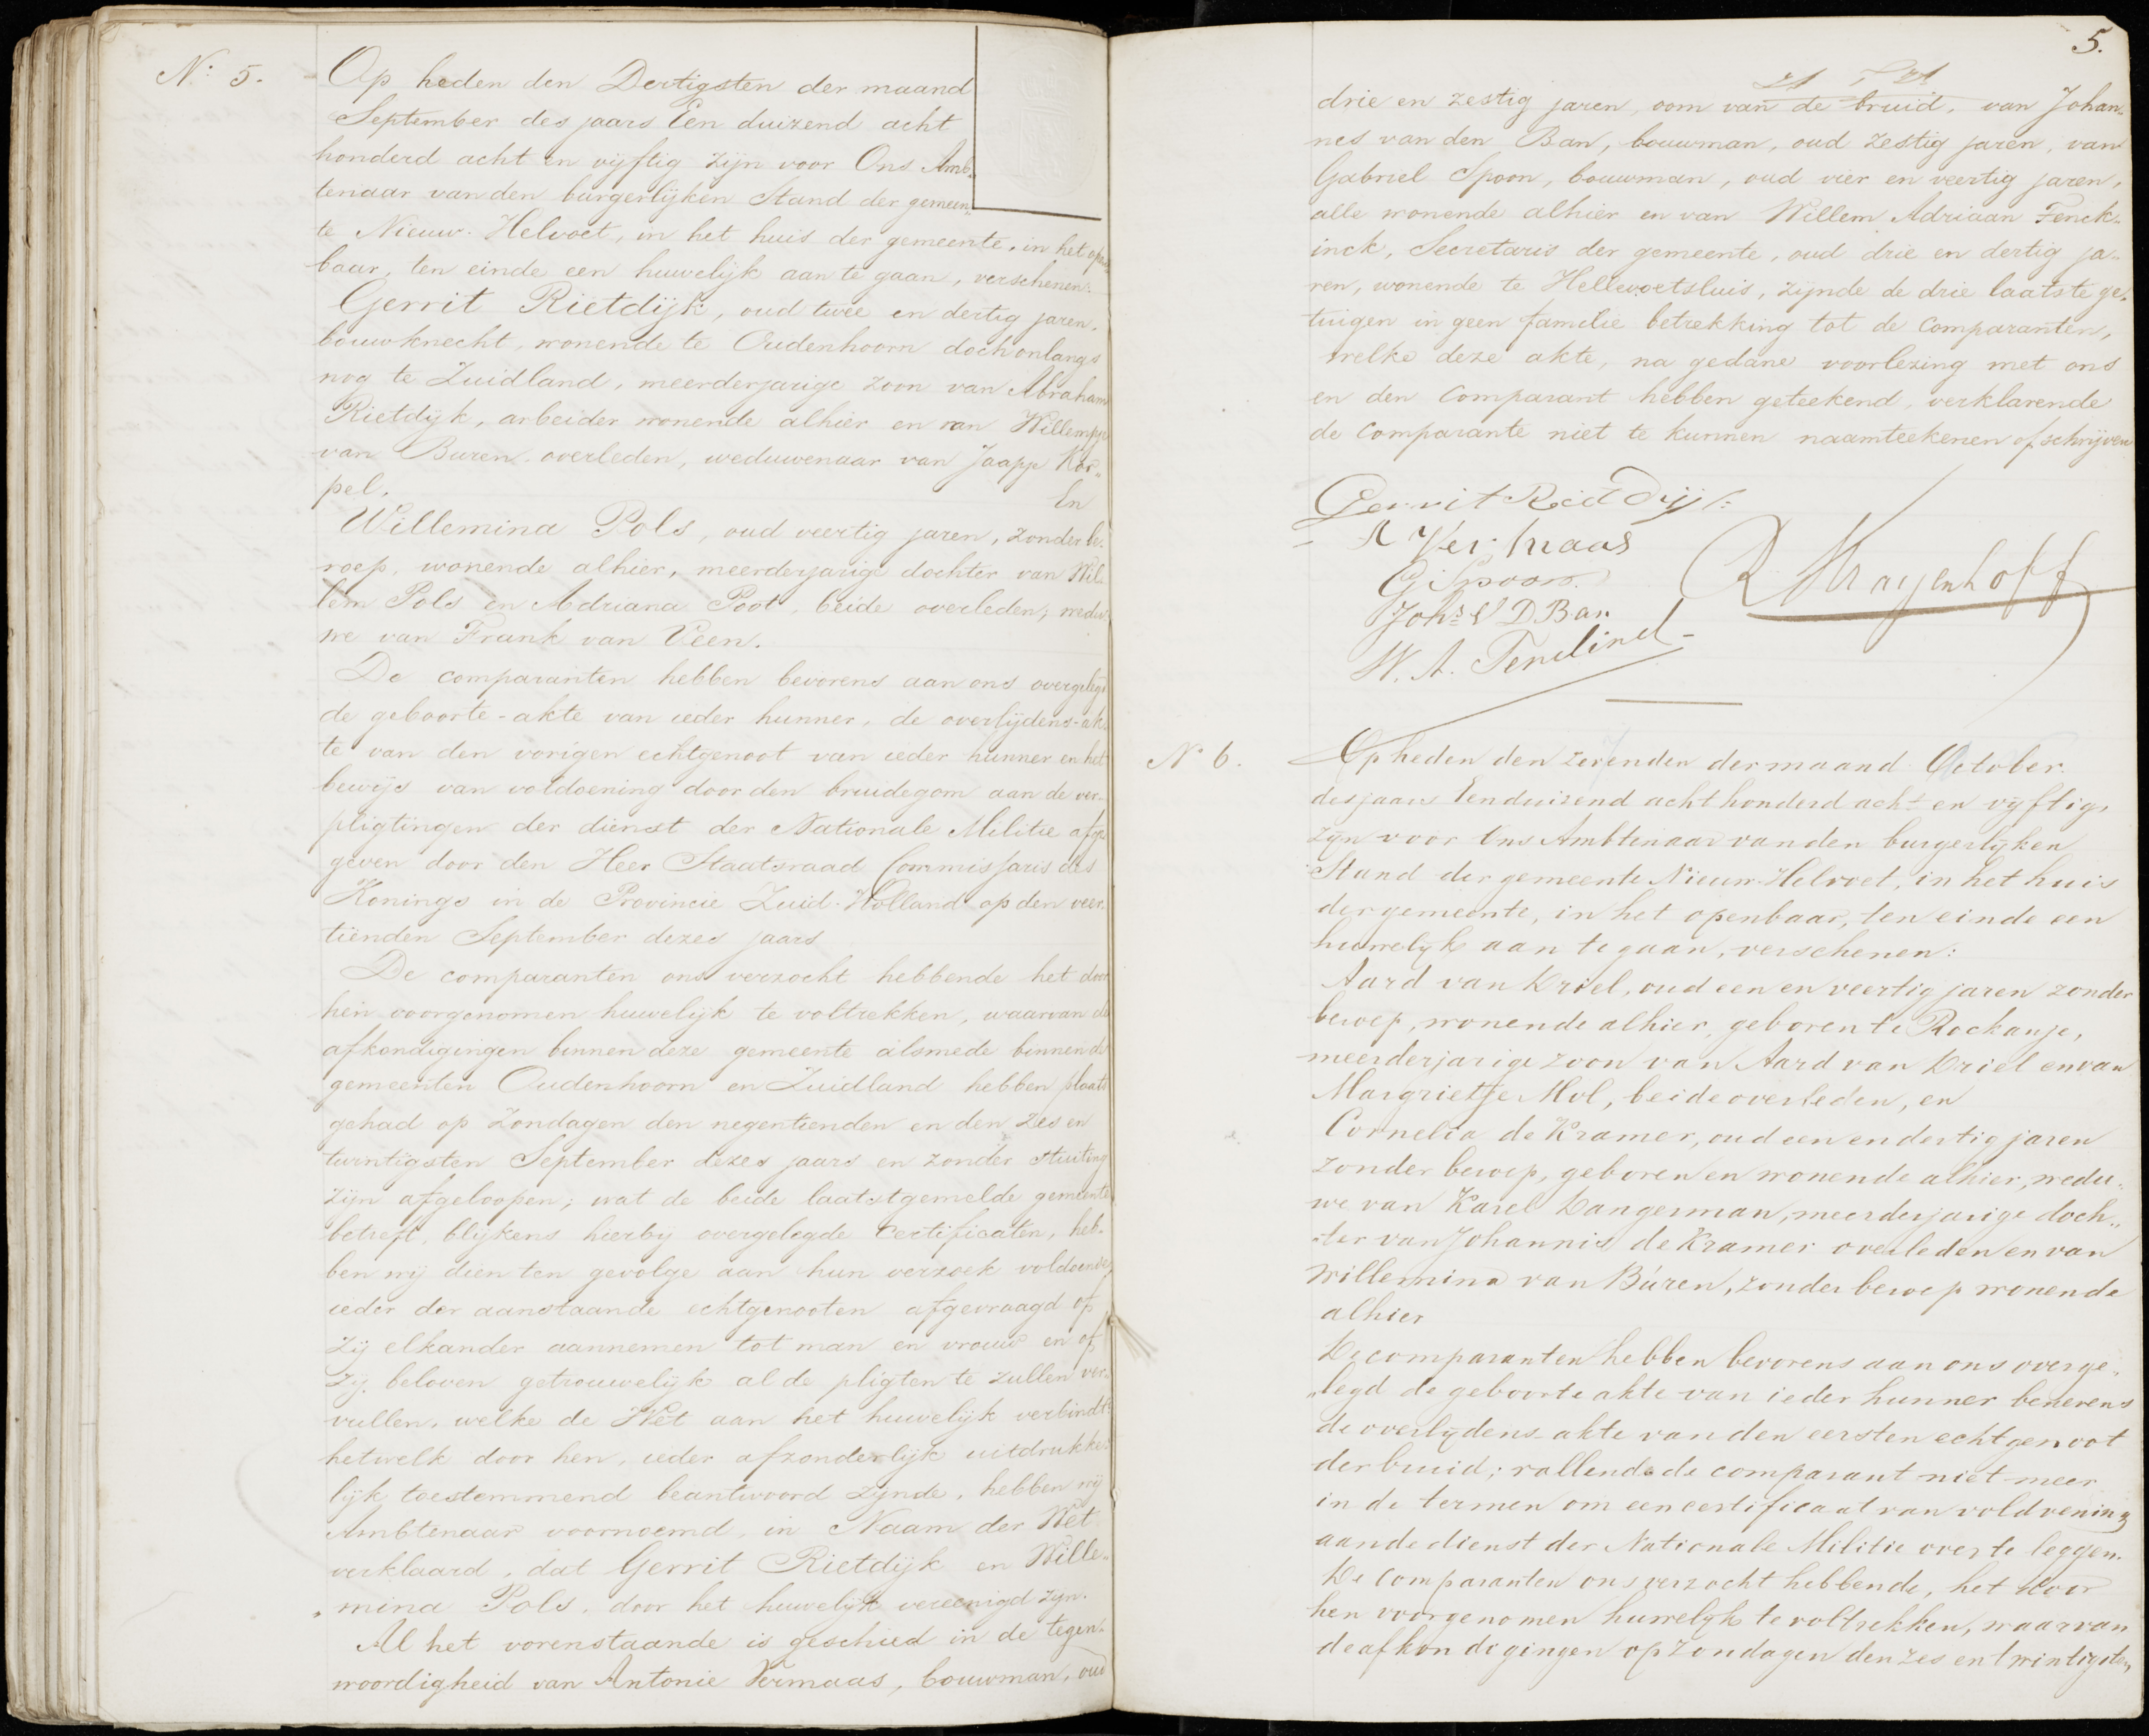 N: 5.
Op heden den Dertigsten der maand
September des jaars Een duizend acht
honderd acht en vijftig zijn voor Ons Amb„
tenaar van den burgerlijken Stand der gemeen„
te Nieuw-Helvoet, in het huis der gemeente, in het open
baar, ten einde een huwelijk aan te gaan, verschenen:
Gerrit Rietdijk, oud twee en dertig jaren,
bouwknecht, wonende te Oudenhoorn doch onlangs
nog te Zuidland, meerderjarige zoon van Abraham
Rietdijk, arbeider wonende alhier en van Willempje
van Buren overleden, weduwenaar van Jaapje Kor„
pel.
En
Willemina Pols, oud veertig jaren, zonder be„
roep, wonende alhier, meerderjarige dochter van Wil„
lem Pols en Adriana Poot, beide overleden; wedu„
we van Frank van Veen.
De comparanten hebben bevorens aan ons overgelegd
de geboorte-akte van ieder hunner, de overlijdens-ak„
te van den vorigen echtgenoot van ieder hunner en het
bewijs van voldoening door den bruidegom aan de ver„
pligtingen der dienst der Nationale Militie afge
geven door den Heer Staatsraad Commissaris des
Konings in de Provincie Zuid-Holland op den veer„
tienden September dezes jaars
De comparanten ons verzocht hebbende het door
hen voorgenomen huwelijk te voltrekken, waarvan de
afkondigingen binnen deze gemeente alsmede binnen de
gemeenten Oudenhoorn en Zuidland hebben plaats
gehad op Zondagen den negentienden en den zes en
twintigsten September dezes jaars en zonder stuiting
zijn afgeloopen; wat de beide laatstgemelde gemeente
betreft, blijkens hierbij overgelegde Certificaten, heb„
ben wij dien ten gevolge aan hun verzoek voldoende,
ieder der aanstaande echtgenooten afgevraagd of
zij elkander aannemen tot man en vrouw en of
zij beloven getrouwelijk al de pligten te zullen ver„
vullen, welke de Wet aan het huwelijk verbindt:
hetwelk door hen, ieder afzonderlijk uitdrukke„
lijk toestemmend beantwoord zijnde, hebben wij
Ambtenaar voornoemd, in Naam der Wet
verklaard, dat Gerrit Rietdijk en Wille„
„mina Pols, door het huwelijk vereenigd zijn.
Al het vorenstaande is geschied in de tegen„
woordigheid van Antonie Vermaas, bouwman, oud
5.
drie en zestig jaren, oom van de bruid, van Johan„
nes van den Ban, bouwman, oud zestig jaren, van
Gabriel Spoon, bouwman, oud vier en veertig jaren,
alle wonende alhier en van Willem Adriaan Fenck„
inck, Secretaris der gemeente, oud drie en dertig ja„
ren, wonende te Hellevoetsluis, zijnde de drie laatste ge„
tuigen in geen familie betrekking tot de Comparanten,
welke deze akte, na gedane voorlezing met ons
en den Comparant hebben geteekend, verklarende
de Comparante niet te kunnen naamteekenen of schrijven
Gerrit Rietdijk
A Vermaas
G Spoon
Johs V D Ban
W. A. Fenckinck
N° 6.
Op heden den zevenden der maand October
des jaars Eenduizend acht honderd acht en vijftig,
zijn voor Ons Ambtenaar van den burgerlijken
Stand der gemeente Nieuw-Helvoet, in het huis
der gemeente, in het openbaar, ten einde een
huwelijk aan te gaan, verschenen:
Aard van Driel, oud een en veertig jaren zonder
beroep, wonende alhier, geboren te Rockanje,
meerderjarige zoon van Aard van Driel en van
Margrietje Mol, beide overleden, en
Cornelia de Kramer, oud een en dertig jaren
zonder beroep, geboren en wonende alhier, wedu„
we van Karel Dangerman, meerderjarige doch„
„ter van Johannis de Kramer overleden en van
Willemina van Buren, zonder beroep wonende
alhier
De comparanten hebben bevorens aan ons overge„
„legd de geboorte akte van ieder hunner benevens
de overlijdens-akte van den eersten echtgenoot
der bruid; vallende de comparant niet meer
in de termen om een certificaat van voldoening
aan de dienst der Nationale Militie over te leggen.
De Comparanten ons verzocht hebbende, het door
hen voorgenomen huwelijk te voltrekken, waarvan
de afkondigingen op Zondagen den zes en twintigsten